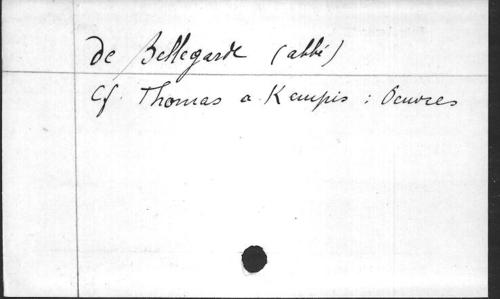 de Bellegarde (abbé)
Cf. Thomas a Kempis : Oeuvres